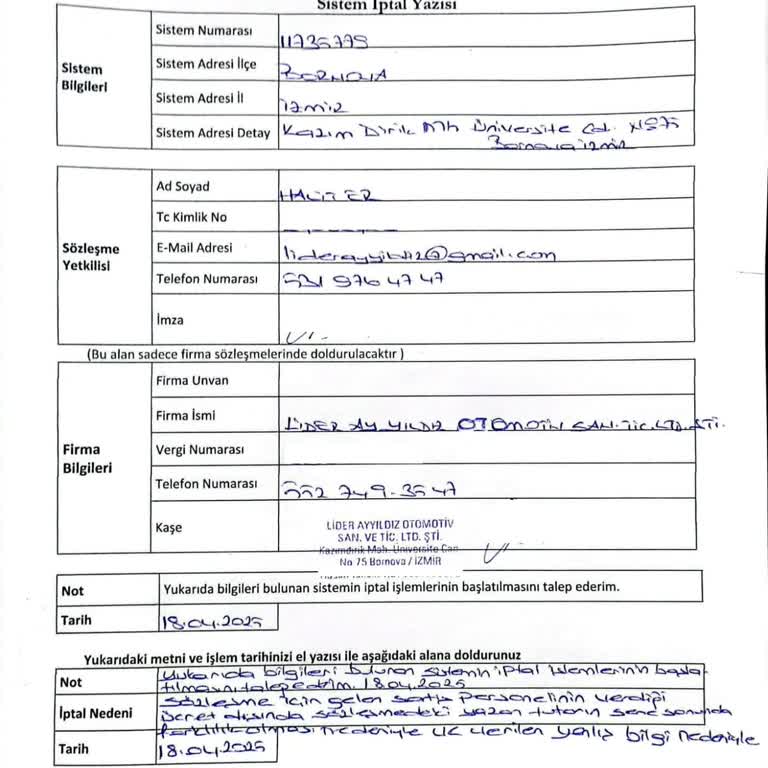 Sistem İptal Yazısı
Sistem Bilgileri
Sistem Numarası 11735779
Sistem Adresi İlçe BORNOVA
Sistem Adresi İl İZMİR
Sistem Adresi Detay Kazım Dirik Mh Üniversite Cd.
Bornova izmir
Sözleşme Yetkilisi
Ad Soyad HALİT ER
Tc Kimlik No
E-Mail Adresi liderayyildiz@gmail.com
Telefon Numarası 531 976 47 47
İmza
(Bu alan sadece firma sözleşmelerinde doldurulacaktır )
Firma Bilgileri
Firma Unvan
Firma İsmi LİDER AY YILDIZ OTOMOTİV SAN. TİC. LTD. ŞTİ.
Vergi Numarası
Telefon Numarası 552 749-3547
Kaşe
LİDER AYYILDIZ OTOMOTİV
SAN. VE TİC. LTD. ŞTİ.
Kazımdirik Mah. Üniversite Cad
No 75 Bornova / İZMİR
Not Yukarıda bilgileri bulunan sistemin iptal işlemlerinin başlatılmasını talep ederim.
Tarih 18.04.2025
Yukarıdaki metni ve işlem tarihinizi el yazısı ile aşağıdaki alana doldurunuz
Not Yukarıda bilgileri bulunan sistemin iptal işlemlerinin başla
tılmasını talep ederim. 18.04.2025
İptal Nedeni sözleşme için gelen satış personelinin verdiği
ücret dışında sözleşmedeki yazan tutarın sene sonunda
farklılık olması nedeniyle ve verilen yanlış bilgi nedeniyle
Tarih 18.04.2025